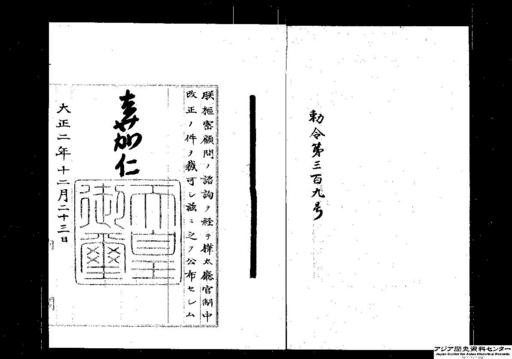 勅令第三百九号
朕枢密顧問ノ諮詢ヲ経テ樺太庁官制中
改正ノ件ヲ裁可シ茲ニ之ヲ公布セシム
嘉仁
天皇
御璽
大正二年十二月二十三日
アジア歴史資料センター
Japan Center for Asian Historical Records